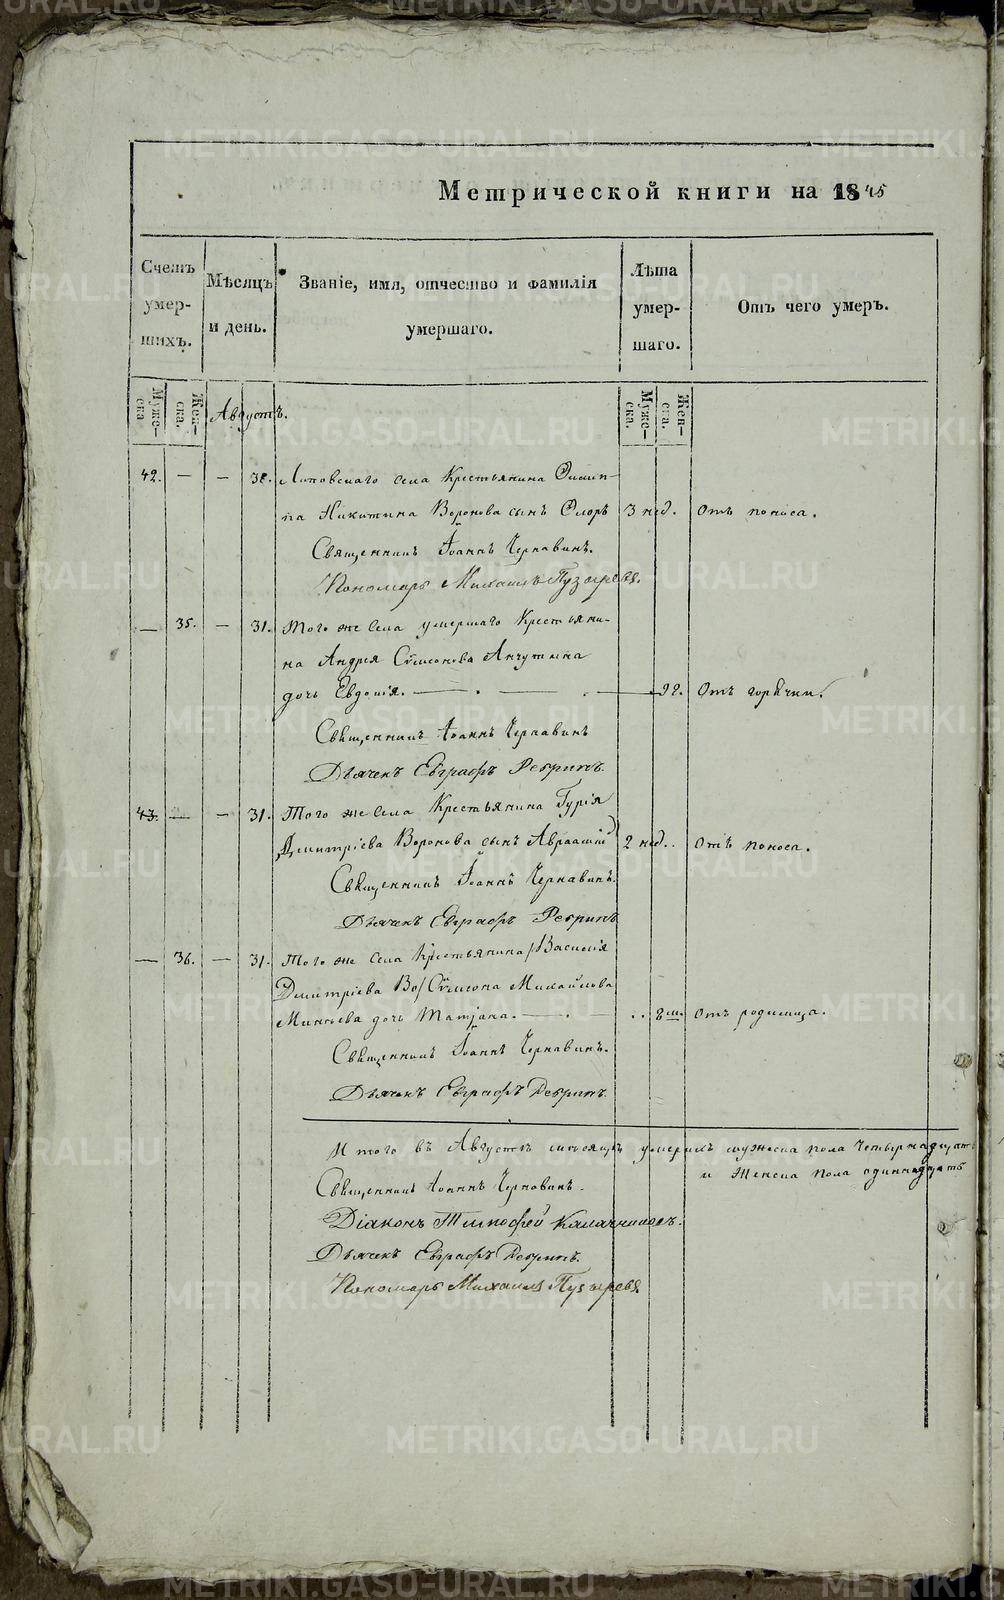 Метрической книги на 1845
Счетъ умер-шихъ.
Мѣсяцъ и день.
Званіе, имя, отчество и фамилія умершаго.
Лѣта умер-шаго.
Отъ чего умеръ.
Муже-ска.
Жен-ска.
Августъ.
Муже-ска.
Жен-ска.
42. — — 30. Липовскаго села Крестьянина Филип-
па Никитина Воронова сынъ Флоръ 3 нед. Отъ поноса.
Священникъ Іоаннъ Чернавинъ.
Пономарь Михаилъ Пузыревъ.
— 35. — 31. Того же села умершаго Крестьяни-
на Андрея Сѵмеонова Анчутина
дочь Евдокія. 92. Отъ горячки.
Священникъ Іоаннъ Чернавинъ
Дьячекъ Евграфъ Ребринъ.
43. — — 31. Того же села Крестьянина Гурія
Димитріева Воронова сынъ Авраамій 2 нед. Отъ поноса.
Священникъ Іоаннъ Чернавинъ.
Дьячекъ Евграфъ Ребринъ
— 36. — 31. Того же села Крестьянина /Василія
Димитріева Во/ Сѵмеона Михайлова
Минѣева дочь Татіана. 8 м. Отъ родимца.
Священникъ Іоаннъ Чернавинъ.
Дьячекъ Евграфъ Ребринъ.
Итого въ Августѣ мѣсяцѣ умерлъ мужеска пола четырнадцать
и женска пола одиннадцать
Священникъ Іоаннъ Чернавинъ.
Діаконъ Тимофей Калачниковъ.
Дьячекъ Евграфъ Ребринъ.
Пономарь Михаилъ Пузыревъ.
METRIKI.GASO-URAL.RU